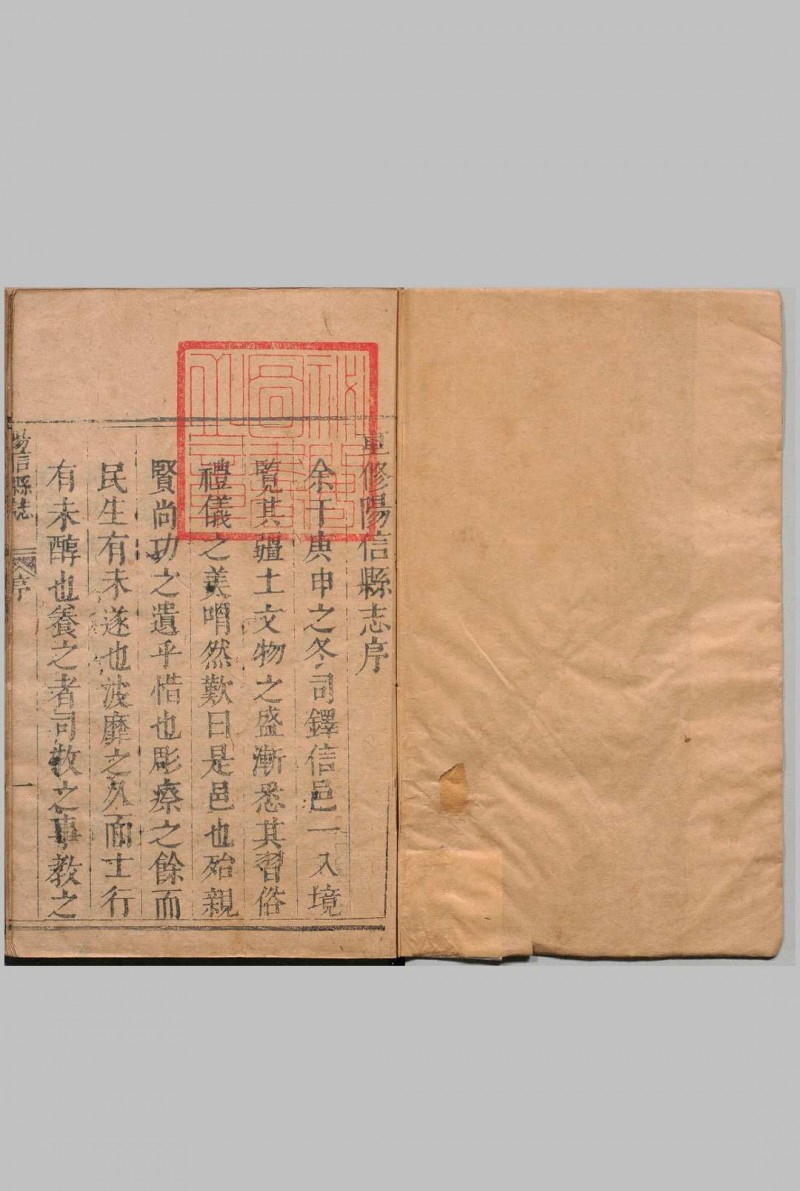 重修陽信縣志序
余于庚申之冬司鐸信邑一入境
覽其疆土文物之盛漸悉其習俗
禮儀之美喟然歎曰是邑也殆親
賢尚功之遺乎惜也彫瘵之餘而
民生有未遂也波靡之久而士行
有未醇也養之者司牧之事教之
陽信縣志
序
一